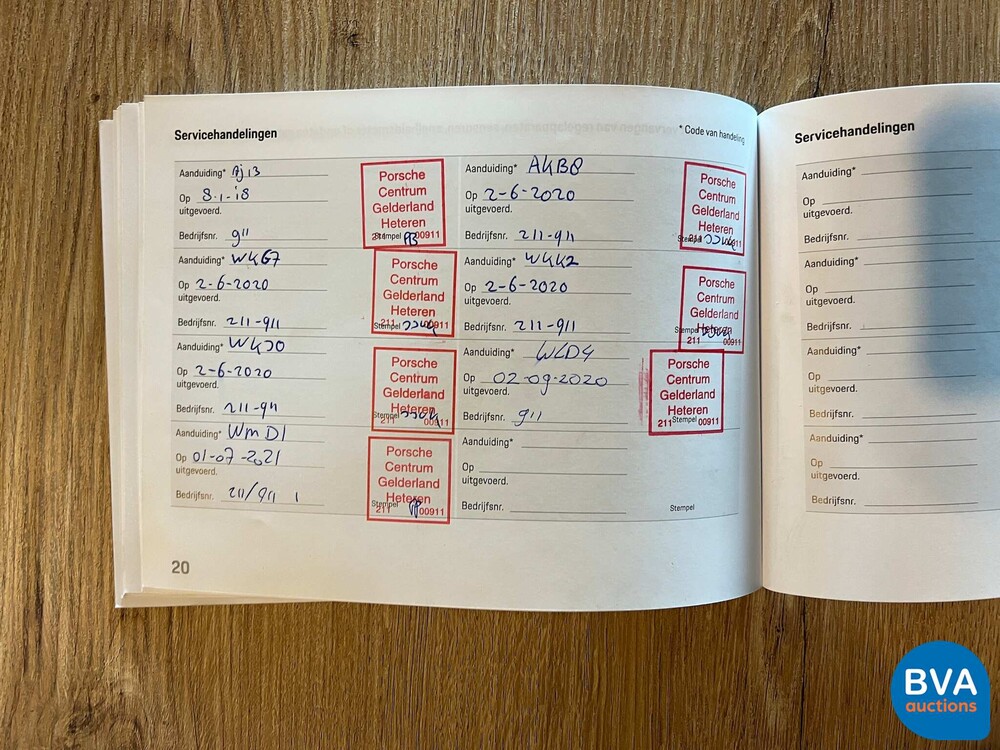 Servicehandelingen
* Code van handeling
Aanduiding* Aj13
Op 8-1-18
uitgevoerd.
Bedrijfsnr. 911
Stempel
Porsche
Centrum
Gelderland
Heteren
211 00911
Aanduiding* WKG7
Op 2-6-2020
uitgevoerd.
Bedrijfsnr. 211-911
Stempel
Porsche
Centrum
Gelderland
Heteren
211 00911
Aanduiding* WKJ0
Op 2-6-2020
uitgevoerd.
Bedrijfsnr. 211-911
Stempel
Porsche
Centrum
Gelderland
Heteren
211 00911
Aanduiding* WMD1
Op 01-07-2021
uitgevoerd.
Bedrijfsnr. 211/911
Stempel
Porsche
Centrum
Gelderland
Heteren
211 00911
Aanduiding* AKB8
Op 2-6-2020
uitgevoerd.
Bedrijfsnr. 211-911
Stempel
Porsche
Centrum
Gelderland
Heteren
211 00911
Aanduiding* WKK2
Op 2-6-2020
uitgevoerd.
Bedrijfsnr. 211-911
Stempel
Porsche
Centrum
Gelderland
Heteren
211 00911
Aanduiding* WLD4
Op 02-09-2020
uitgevoerd.
Bedrijfsnr. 911
Stempel
Porsche
Centrum
Gelderland
Heteren
211 00911
Aanduiding*
Op
uitgevoerd.
Bedrijfsnr.
Stempel
20
Servicehandelingen
Aanduiding*
Op
uitgevoerd.
Bedrijfsnr.
Aanduiding*
Op
uitgevoerd.
Bedrijfsnr.
Aanduiding*
Op
uitgevoerd.
Bedrijfsnr.
Aanduiding*
Op
uitgevoerd.
Bedrijfsnr.
BVA
auctions